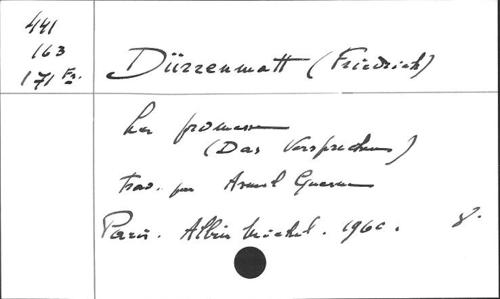 441
163
171 Fr.
Dürrenmatt (Friedrich)
La promesse
(Das Versprechen)
Trad. par Armel Guerne
Paris. Albin Michel. 1960. 8°.